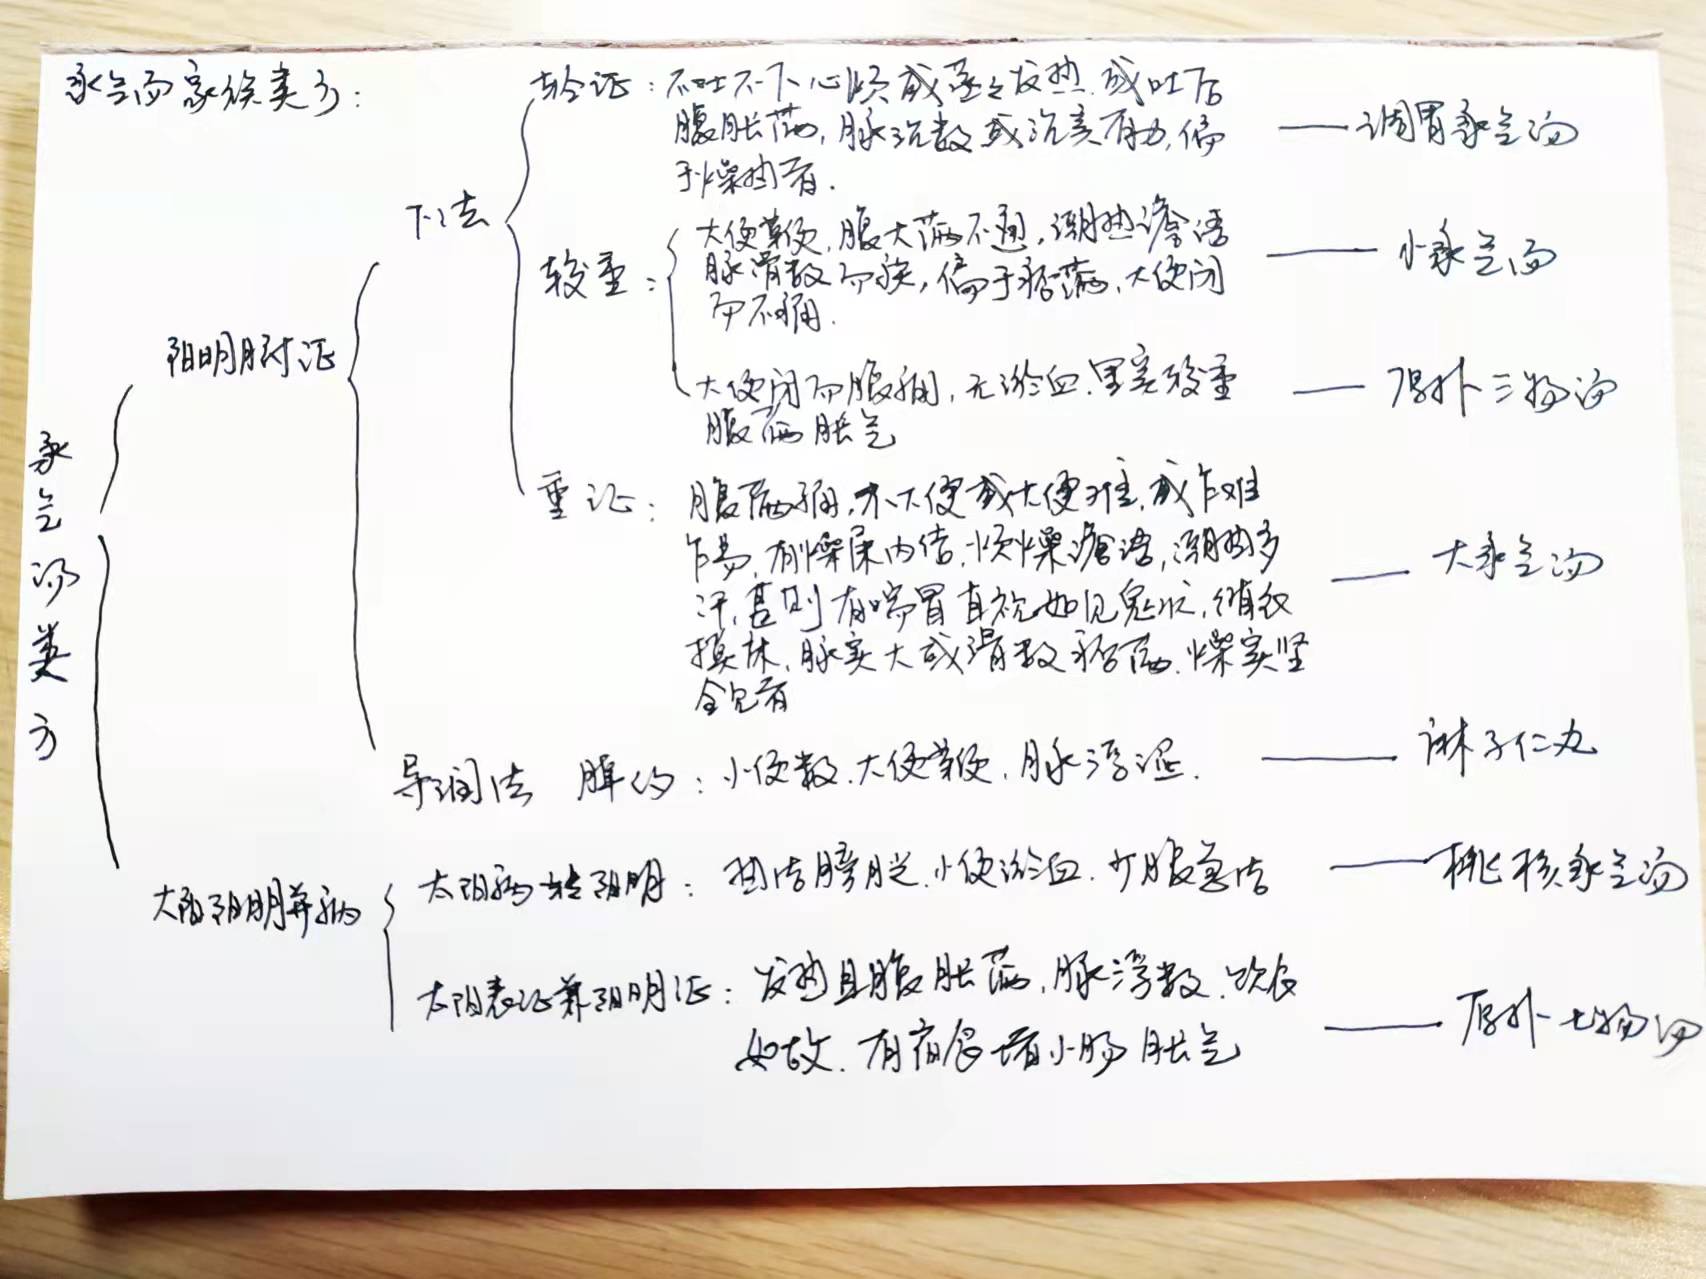 承气汤家族类方:
承气汤类方
阳明腑证
下法
轻证: 不吐不下心烦或蒸蒸发热.或吐后
腹胀满,脉沉数或沉实有力,偏
于燥热者.
——调胃承气汤
较重:
大便革便,腹大满不通,潮热谵语
脉滑数而疾,偏于痞满,大便闭
而不痛.
——小承气汤
大便闭而腹痛,无瘀血.里实较重
腹满胀气
——厚扑三物汤
重证: 腹满痛,不大便或大便难,或乍难
乍易,有燥屎内结,烦燥谵语,潮热多
汗,甚则有喘冒直视如见鬼状,循衣
摸床,脉实大或滑数痞满.燥实坚
全见者
——大承气汤
导润法 脾约: 小便数.大便革便.脉浮涩.
——麻子仁丸
太阳阳明并病
太阳病转阳明: 热结膀胱.小便瘀血.少腹急结
——桃核承气汤
太阳表证兼阳明证: 发热且腹胀满,脉浮数.饮食
如故.有宿食堵小肠胀气
——厚扑七物汤